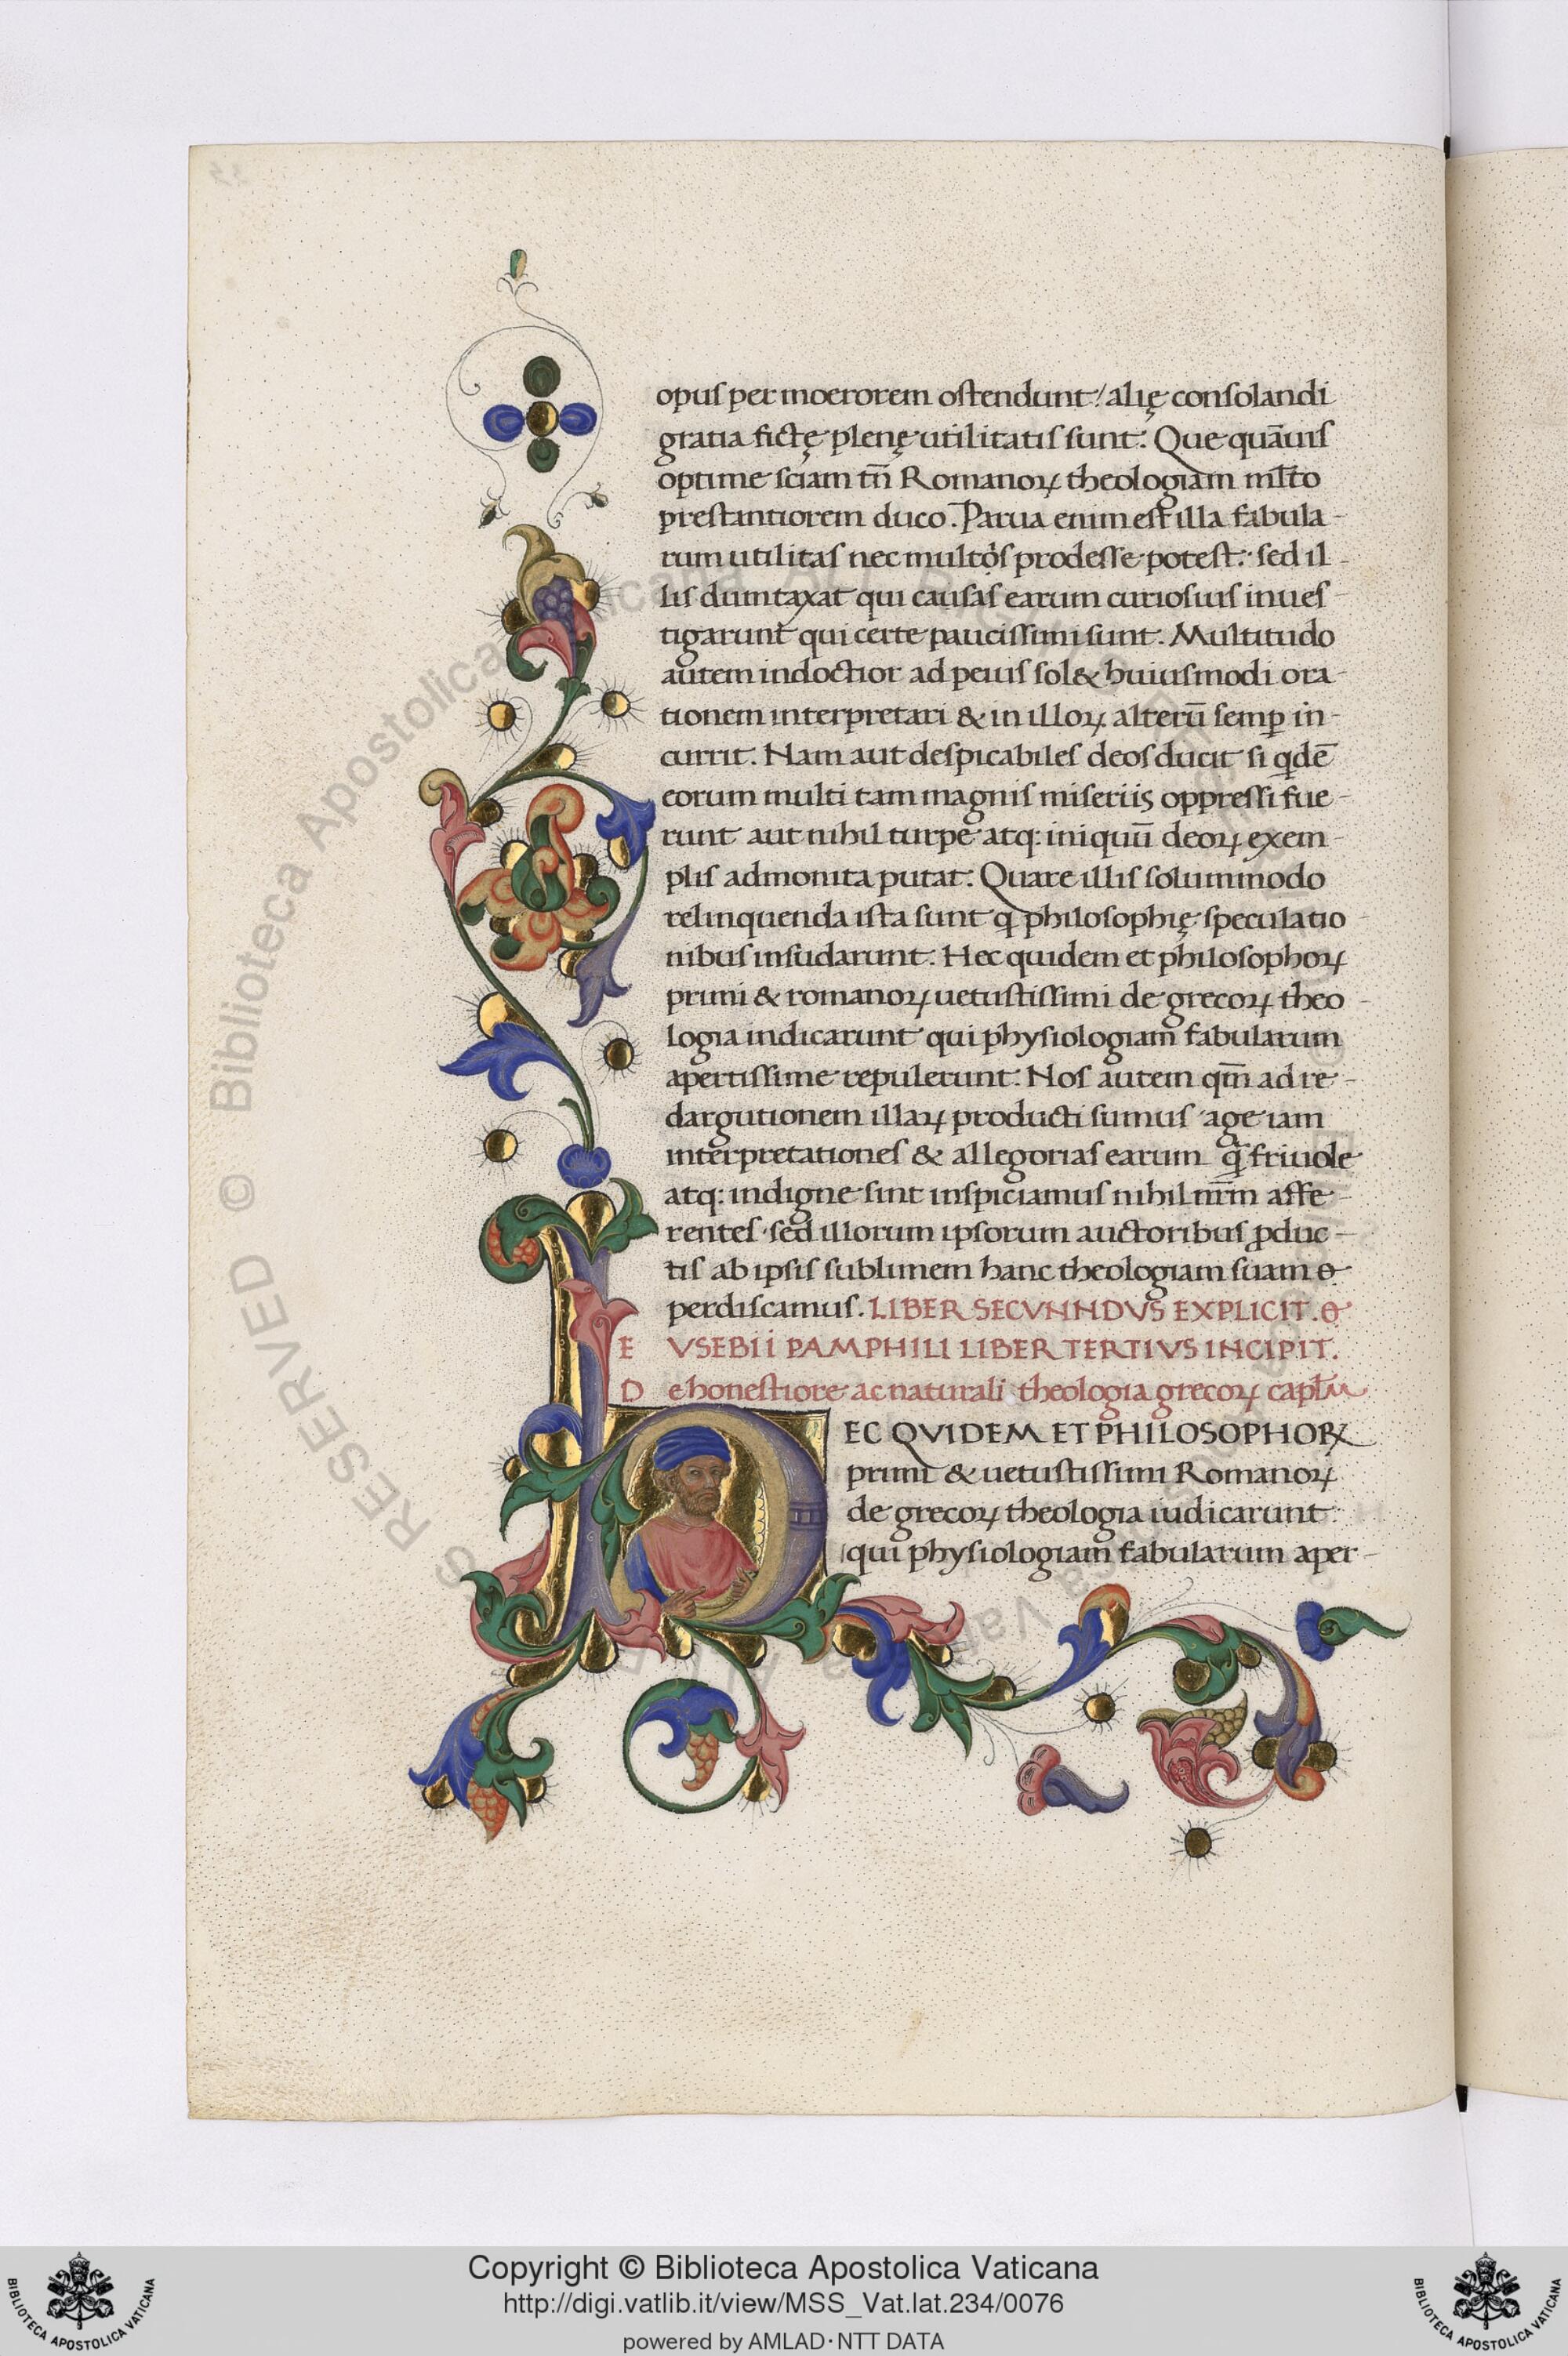 opus per moerorem ostendunt / alię consolandi
gratia fictę plenę utilitatis sunt. Que quāuis
optime sciam tn̄ Romanoꝝ theologiam ml̄to
prestantiorem duco. Parua enim est illa fabula-
rum utilitas nec multos prodesse potest: sed il-
lis dumtaxat qui causas earum curiosius inues-
tigarunt qui certe paucissimi sunt. Multitudo
autem indoctior ad peius sol& huiusmodi ora-
tionem interpretari & in illoꝝ alterū semꝑ in-
currit. Nam aut despicabiles deos ducit si qdē
eorum multi tam magnis miseriis oppressi fue-
runt aut nihil turpe atq: iniquū deoꝝ exem-
plis admonita putat. Quare illis solummodo
relinquenda ista sunt q philosophię speculatio-
nibus insudarunt. Hec quidem et philosophoꝝ
primi & romanoꝝ uetustissimi de grecoꝝ theo-
logia indicarunt qui physiologiam fabularum
apertissime repulerunt. Nos autem qm̄ ad re-
dargutionem illaꝝ producti sumus age iam
interpretationes & allegorias earum q̄ friuole
atq: indigne sint inspiciamus nihil nr̄m affe-
rentes sed illorum ipsorum auctoribus ꝓduc-
tis ab ipsis sublimem hanc theologiam suam
perdiscamus. LIBER SECVNNDVS EXPLICIT.
EVSEBII PAMPHILI LIBER TERTIVS INCIPIT.
De honestiore ac naturali theologia grecoꝝ capl̄m
HEC QVIDEM ET PHILOSOPHOꝝ
primi & uetustissimi Romanoꝝ
de grecoꝝ theologia iudicarunt
qui physiologiam fabularum aper-
Copyright © Biblioteca Apostolica Vaticana
http://digi.vatlib.it/view/MSS_Vat.lat.234/0076
powered by AMLAD·NTT DATA
BIBLIOTECA APOSTOLICA VATICANA
BIBLIOTECA APOSTOLICA VATICANA